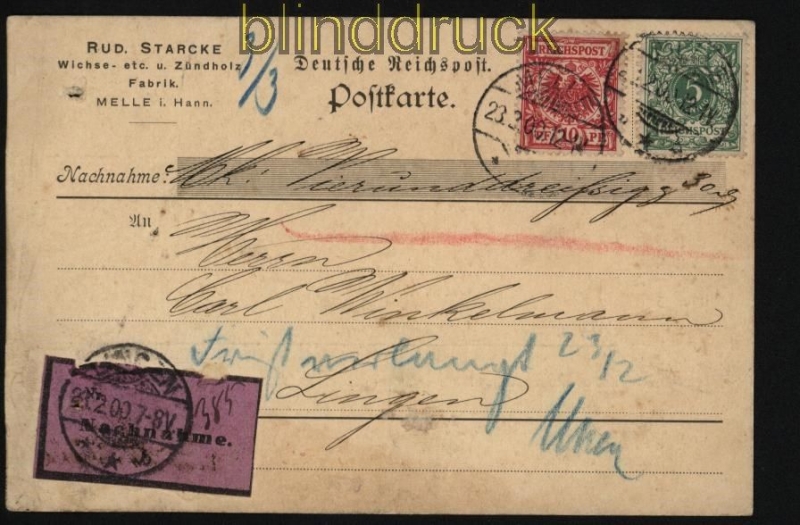 blinddruck
RUD. STARCKE
Wichse- etc. u. Zündholz
Fabrik.
MELLE i. Hann.
9/3
Deutsche Reichspost.
Postkarte.
REICHSPOST
10 PF
5
REICHSPOST
Nachnahme: Mk: Vierunddreißig 30 
An
Herrn
Carl Winkelmann
Frist verlangt 23/2
Lingen
LINGEN
24.2.00.7-8V.
385
Nachnahme.